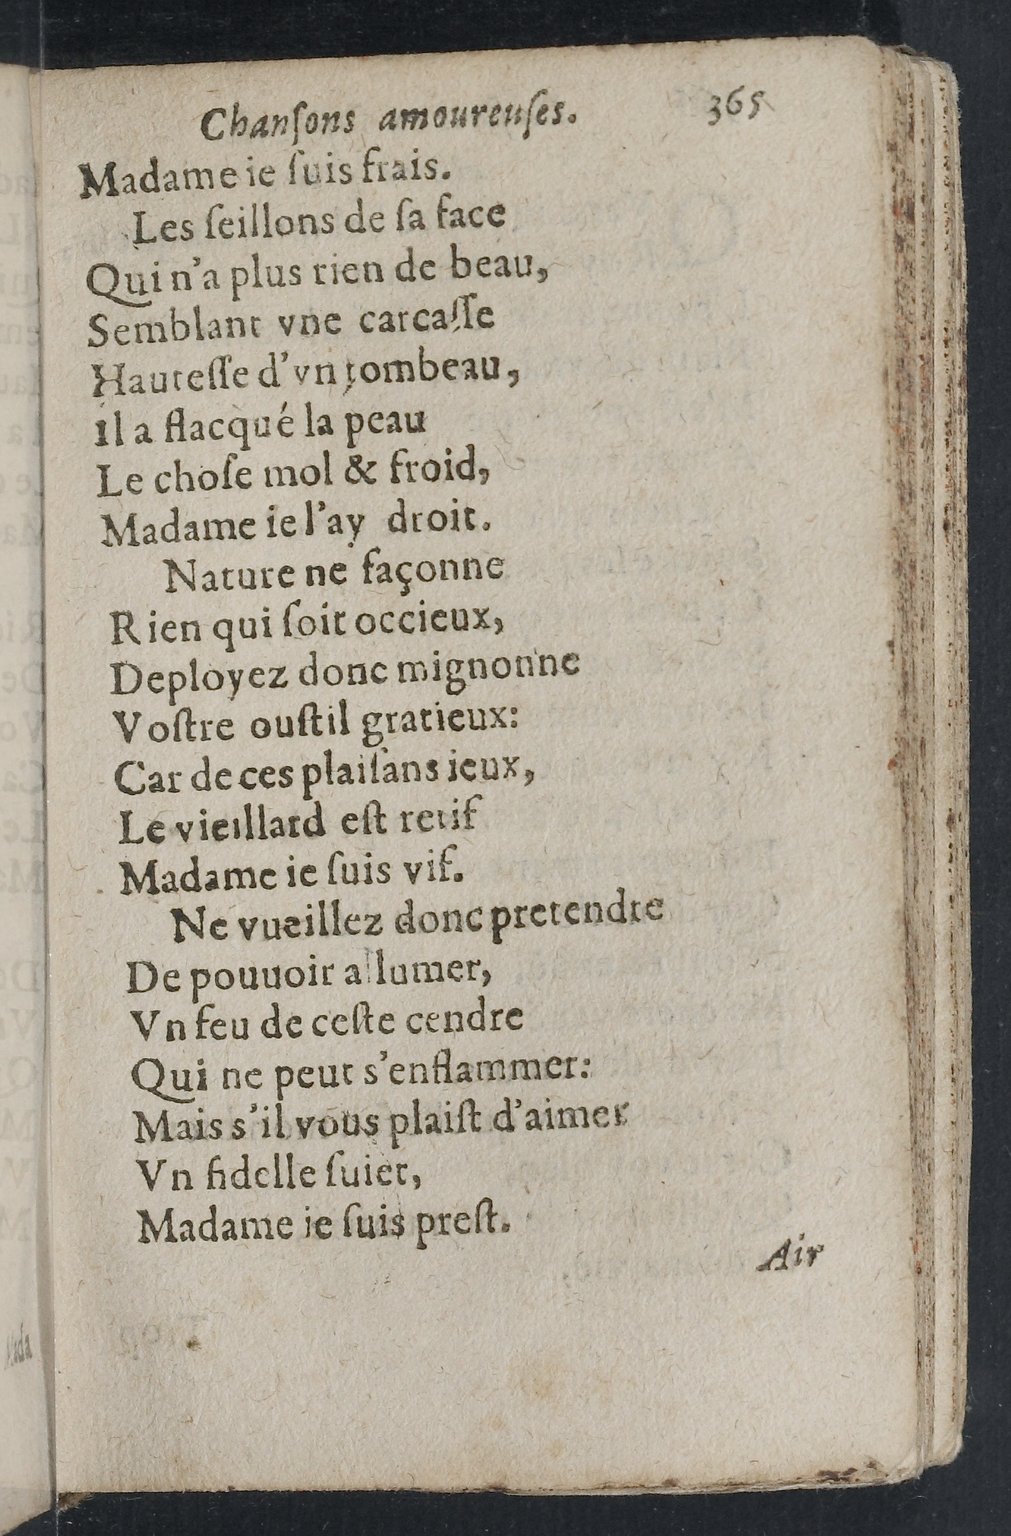 Chanſons amoureuſes. 365
Madame ie ſuis frais.
Les ſeillons de ſa face
Qui n'a plus rien de beau,
Semblant vne carcaſſe
Hauteſſe d'vn tombeau,
il a flacqué la peau
Le choſe mol & froid,
Madame ie l'ay droit.
Nature ne façonne
Rien qui ſoit occieux,
Deployez donc mignonne
Voſtre ouſtil gratieux:
Car de ces plaiſans ieux,
Le vieillard eſt retif
Madame ie ſuis vif.
Ne vueillez donc pretendre
De pouuoir allumer,
Vn feu de ceſte cendre
Qui ne peut s'enflammer:
Mais s'il vous plaiſt d'aimer
Vn fidelle ſuiet,
Madame ie ſuis preſt.
Air